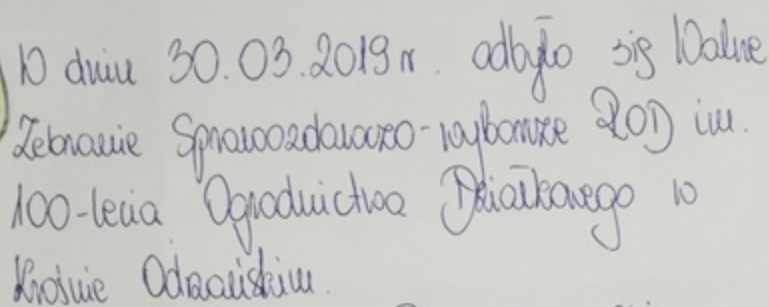 W dniu 30.03.2019 r. odbyło się Walne
Zebranie Sprawozdawczo-wyborcze ROD im.
100-lecia Ogrodnictwa Działkowego w
Krośnie Odrzańskim.